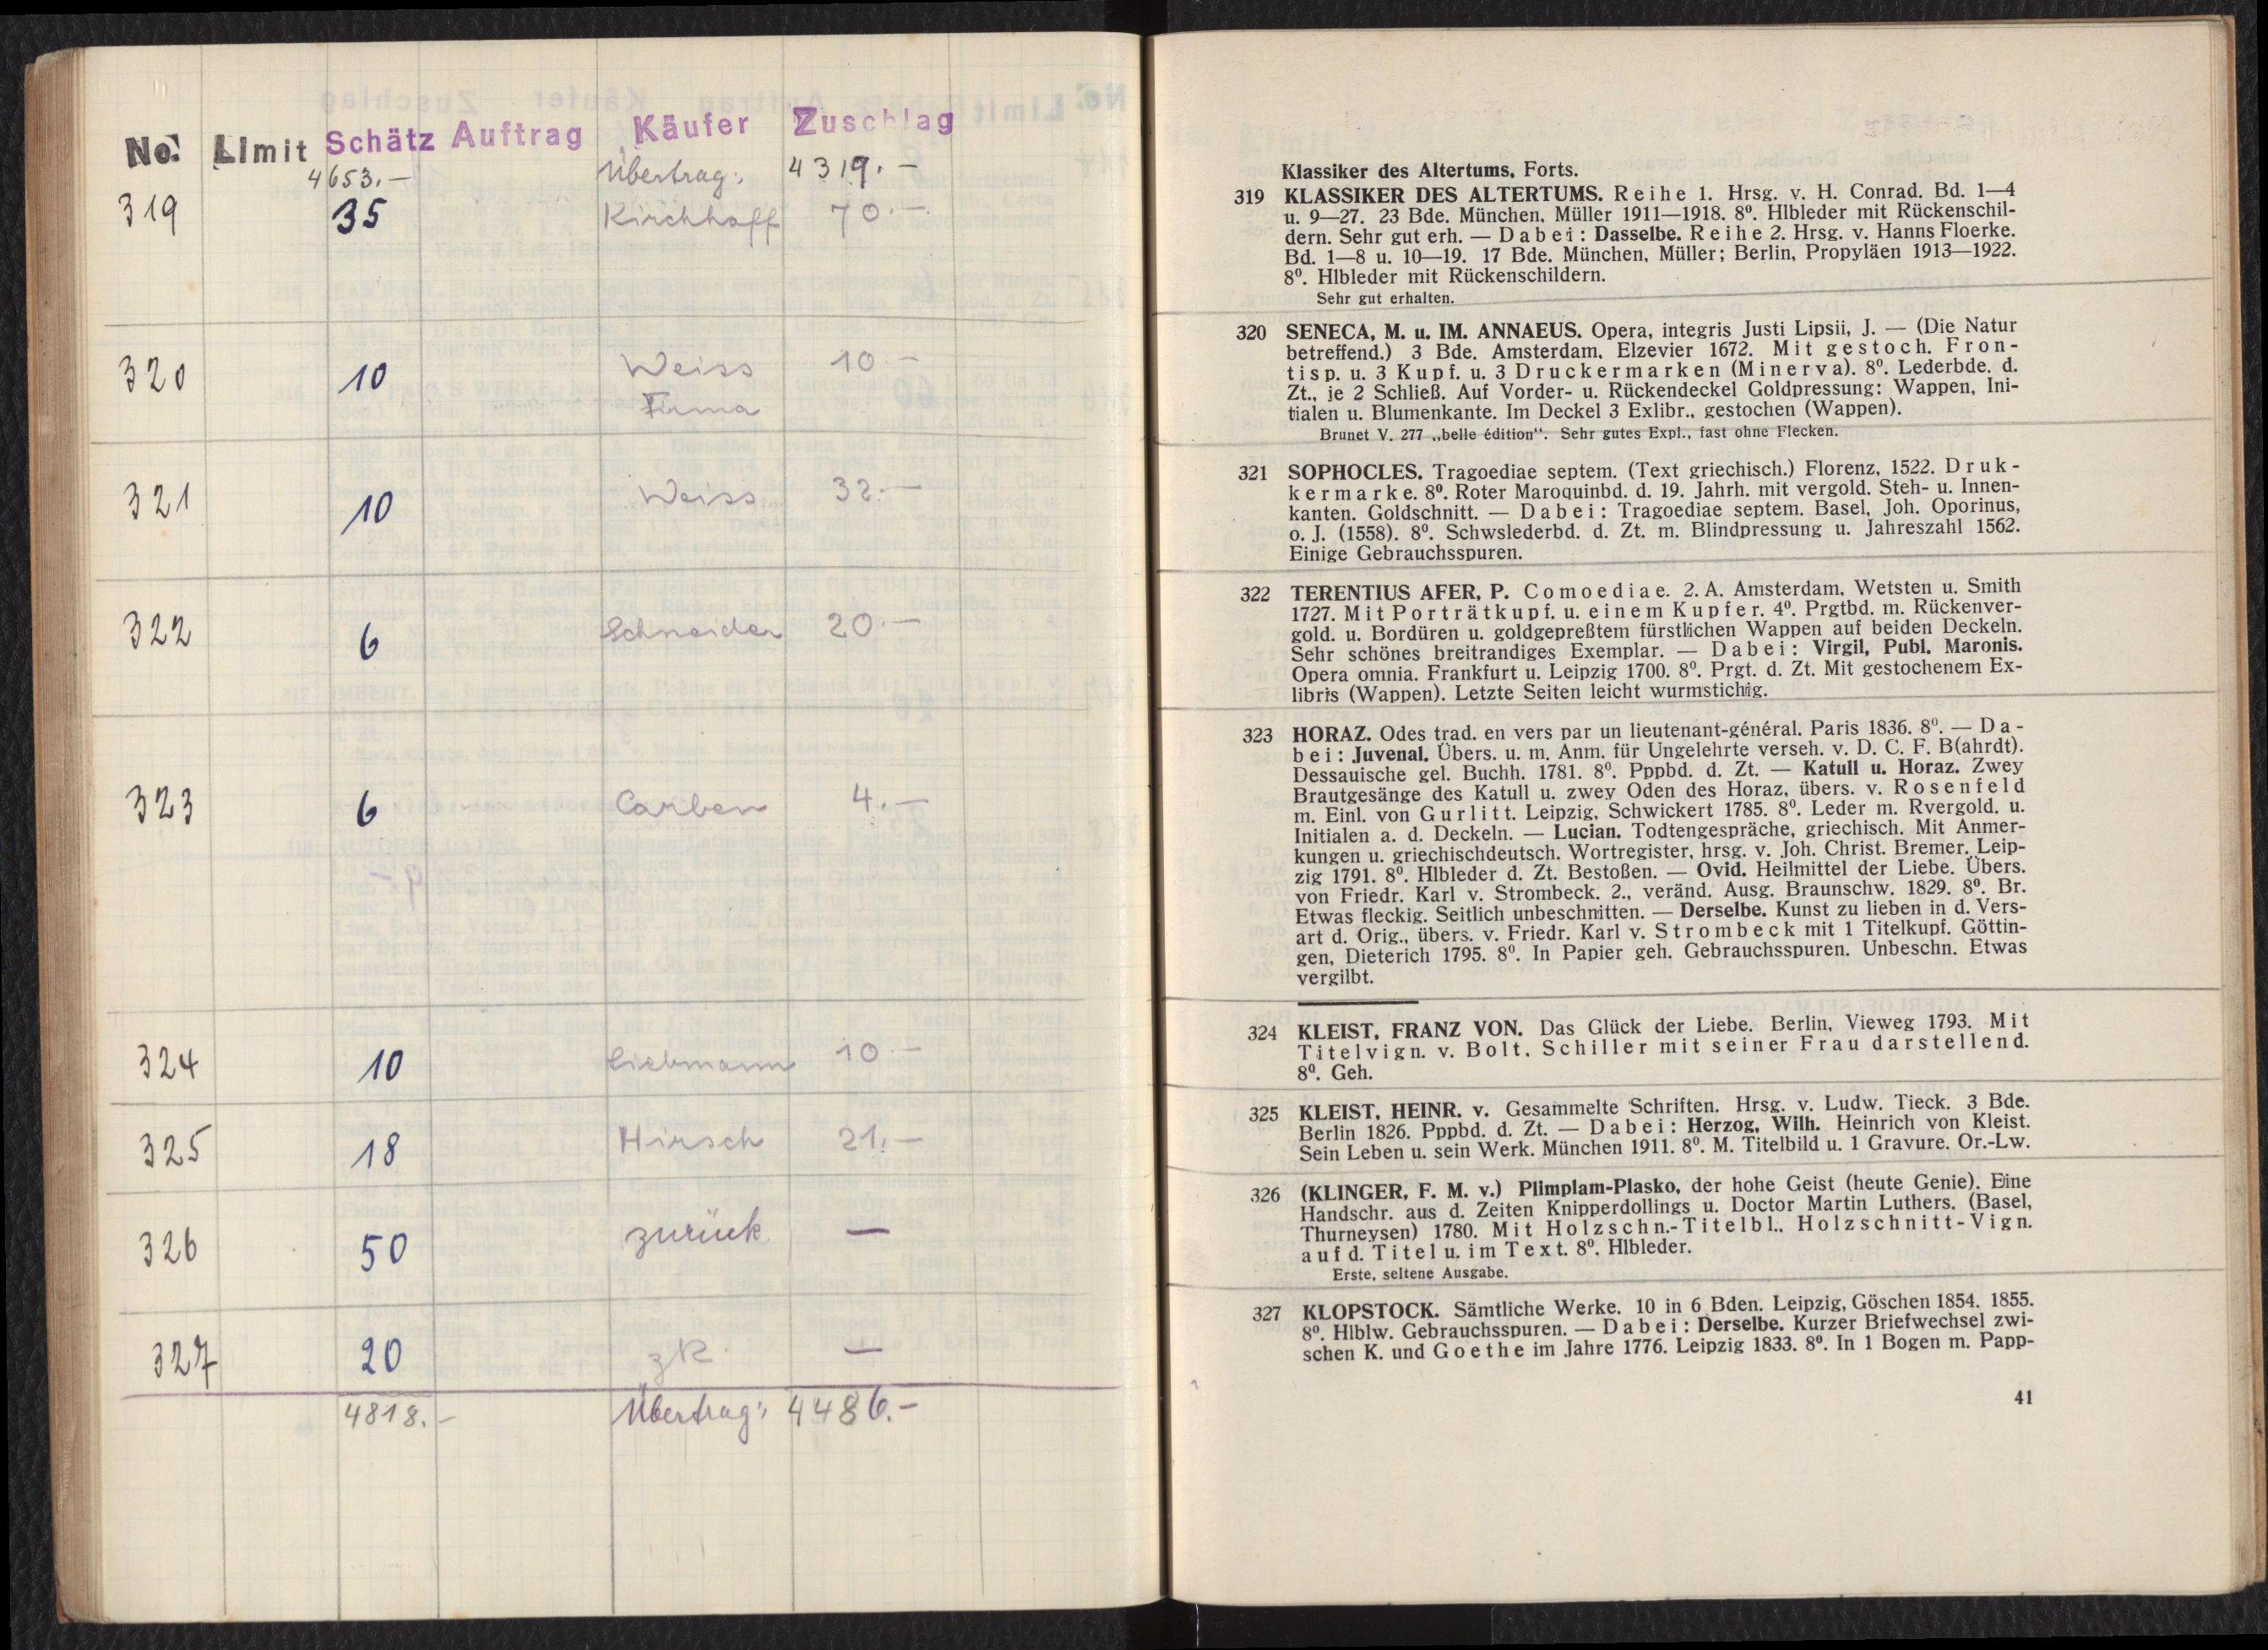 No. Limit Schätz Auftrag Käufer Zuschlag
4653.— Übertrag: 4319.—
319 35 Kirchhoff 70.—
320 10 Weiss 10.—
Firma
321 10 Weiss 32.—
322 6 Schneider 20.—
323 6 Carben 4.—
324 10 Liebmann 10.—
325 18 Hirsch 21.—
326 50 zurück —
327 20 zR —
4818.— Übertrag: 4486.—
Klassiker des Altertums, Forts.
319 KLASSIKER DES ALTERTUMS. Reihe 1. Hrsg. v. H. Conrad. Bd. 1—4
u. 9—27. 23 Bde. München, Müller 1911—1918. 8⁰. Hlbleder mit Rückenschil-
dern. Sehr gut erh. — Dabei: Dasselbe. Reihe 2. Hrsg. v. Hanns Floerke.
Bd. 1—8 u. 10—19. 17 Bde. München, Müller; Berlin, Propyläen 1913—1922.
8⁰. Hlbleder mit Rückenschildern.
Sehr gut erhalten.
320 SENECA, M. u. IM. ANNAEUS. Opera, integris Justi Lipsii, J. — (Die Natur
betreffend.) 3 Bde. Amsterdam, Elzevier 1672. Mit gestoch. Fron-
tisp. u. 3 Kupf. u. 3 Druckermarken (Minerva). 8⁰. Lederbde. d.
Zt., je 2 Schließ. Auf Vorder- u. Rückendeckel Goldpressung: Wappen, Ini-
tialen u. Blumenkante. Im Deckel 3 Exlibr., gestochen (Wappen).
Brunet V. 277 „belle édition“. Sehr gutes Expl., fast ohne Flecken.
321 SOPHOCLES. Tragoediae septem. (Text griechisch.) Florenz, 1522. Druk-
kermarke. 8⁰. Roter Maroquinbd. d. 19. Jahrh. mit vergold. Steh- u. Innen-
kanten. Goldschnitt. — Dabei: Tragoediae septem. Basel, Joh. Oporinus,
o. J. (1558). 8⁰. Schwslederbd. d. Zt. m. Blindpressung u. Jahreszahl 1562.
Einige Gebrauchsspuren.
322 TERENTIUS AFER, P. Comoediae. 2. A. Amsterdam, Wetsten u. Smith
1727. Mit Porträtkupf. u. einem Kupfer. 4⁰. Prgtbd. m. Rückenver-
gold. u. Bordüren u. goldgepreßtem fürstlichen Wappen auf beiden Deckeln.
Sehr schönes breitrandiges Exemplar. — Dabei: Virgil, Publ. Maronis.
Opera omnia. Frankfurt u. Leipzig 1700. 8⁰. Prgt. d. Zt. Mit gestochenem Ex-
libris (Wappen). Letzte Seiten leicht wurmstichig.
323 HORAZ. Odes trad. en vers par un lieutenant-général. Paris 1836. 8⁰. — Da-
bei: Juvenal. Übers. u. m. Anm. für Ungelehrte verseh. v. D. C. F. B(ahrdt).
Dessauische gel. Buchh. 1781. 8⁰. Pppbd. d. Zt. — Katull u. Horaz. Zwey
Brautgesänge des Katull u. zwey Oden des Horaz, übers. v. Rosenfeld
m. Einl. von Gurlitt. Leipzig, Schwickert 1785. 8⁰. Leder m. Rvergold. u.
Initialen a. d. Deckeln. — Lucian. Todtengespräche, griechisch. Mit Anmer-
kungen u. griechischdeutsch. Wortregister, hrsg. v. Joh. Christ. Bremer. Leip-
zig 1791. 8⁰. Hlbleder d. Zt. Bestoßen. — Ovid. Heilmittel der Liebe. Übers.
von Friedr. Karl v. Strombeck. 2., veränd. Ausg. Braunschw. 1829. 8⁰. Br.
Etwas fleckig. Seitlich unbeschnitten. — Derselbe. Kunst zu lieben in d. Vers-
art d. Orig., übers. v. Friedr. Karl v. Strombeck mit 1 Titelkupf. Göttin-
gen, Dieterich 1795. 8⁰. In Papier geh. Gebrauchsspuren. Unbeschn. Etwas
vergilbt.
324 KLEIST, FRANZ VON. Das Glück der Liebe. Berlin, Vieweg 1793. Mit
Titelvign. v. Bolt, Schiller mit seiner Frau darstellend.
8⁰. Geh.
325 KLEIST, HEINR. v. Gesammelte Schriften. Hrsg. v. Ludw. Tieck. 3 Bde.
Berlin 1826. Pppbd. d. Zt. — Dabei: Herzog, Wilh. Heinrich von Kleist.
Sein Leben u. sein Werk. München 1911. 8⁰. M. Titelbild u. 1 Gravure. Or.-Lw.
326 (KLINGER, F. M. v.) Plimplam-Plasko, der hohe Geist (heute Genie). Eine
Handschr. aus d. Zeiten Knipperdollings u. Doctor Martin Luthers. (Basel,
Thurneysen) 1780. Mit Holzschn.-Titelbl., Holzschnitt-Vign.
auf d. Titel u. im Text. 8⁰. Hlbleder.
Erste, seltene Ausgabe.
327 KLOPSTOCK. Sämtliche Werke. 10 in 6 Bden. Leipzig, Göschen 1854. 1855.
8⁰. Hlblw. Gebrauchsspuren. — Dabei: Derselbe. Kurzer Briefwechsel zwi-
schen K. und Goethe im Jahre 1776. Leipzig 1833. 8⁰. In 1 Bogen m. Papp-
41